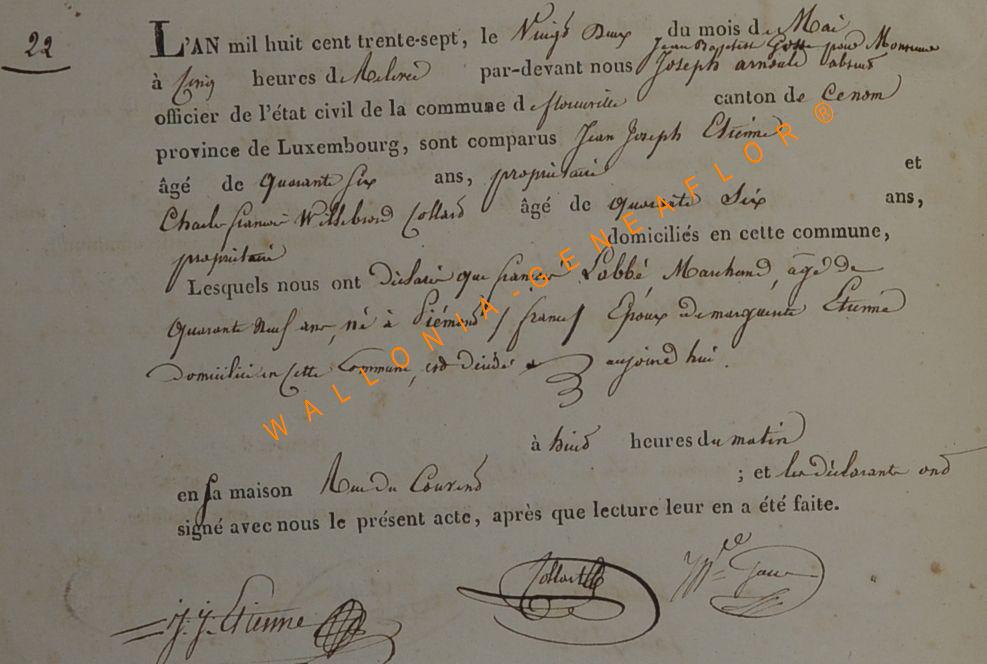 22
L'AN mil huit cent trente-sept, le Vingt Deux du mois de Mai
Jean Baptiste pour Monsieur
à Cinq heures de Relevée par-devant nous Joseph arnould absent
officier de l'état civil de la commune de florenville canton de
province de Luxembourg, sont comparus Jean Joseph Etienne
âgé de Quarante six ans, propriétaire et
Charles françois Willebrord Collard âgé de quarante Six ans,
propriétaire domiciliés en cette commune,
Lesquels nous ont déclaré que françois Labbé Marchand, âgé de
Quarante Neuf ans, né à Piémont / france / Epoux de marguerite Etienne
Domicilié en Cette Commune, est décédé aujourd'hui
à huit heures du matin
en sa maison Rue du Couvent ; et les déclarants ont
signé avec nous le présent acte, après que lecture leur en a été faite.
J. J. Etienne Collard
WALLONIA-GENEAFLOR®